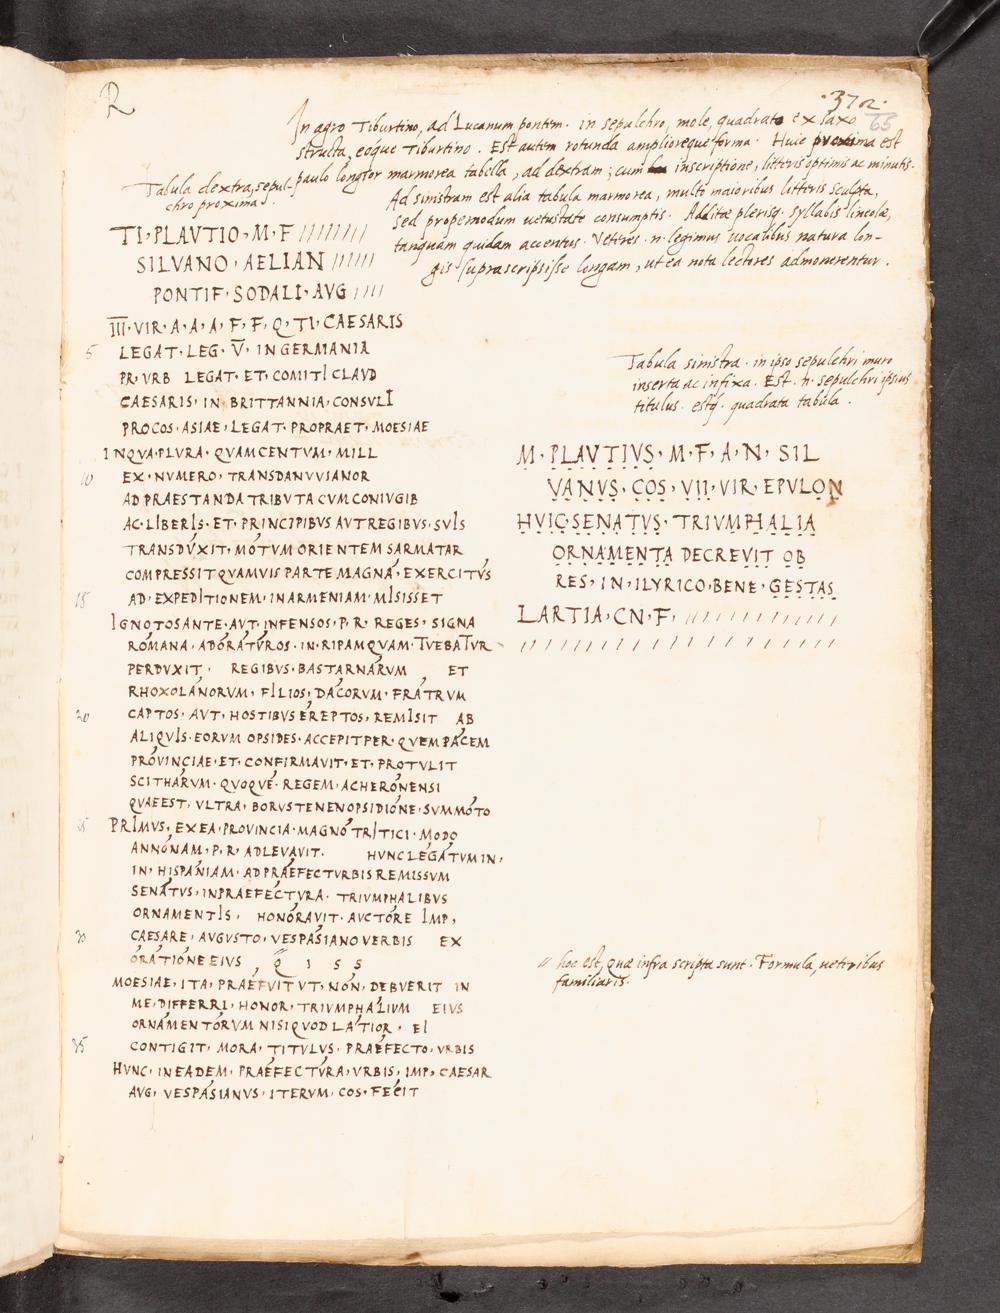 R
.372.
65
In agro Tiburtino, ad Lucanum pontem. in sepulchro, mole, quadrato ex saxo
structa, eoque Tiburtino. Est autem rotunda ampliореque forma. Huic proxima est
paulo longior marmorea tabella, ad dextram; cum inscriptione, litteris optimis ac minutis.
Ad sinistram est alia tabula marmorea, multo maioribus litteris sculpta,
sed propemodum uetustate consumptis. Additæ plerisq. syllabis lineolæ,
tanquam quidam accentus. Veteres .n. legimus uocalibus natura lon-
gis suprascripsisse longam, ut ea nota lectores admonerentur.
Tabula dextra, sepul-
chro proxima.
TI, PLAVTIO, M, F ////////
SILVANO, AELIAN /////
PONTIF, SODALI, AVG ////
III, VIR, A, A, A, F, F, Q, TI, CAESARIS
5 LEGAT, LEG, V, IN GERMANIA
PR, VRB LEGAT, ET, COMITI CLAVD
CAESARIS, IN BRITTANNIA, CONSVLI
PROCOS, ASIAE, LEGAT, PROPRAET, MOESIAE
INQVA, PLVRA, QVAMCENTVM, MILL
10 EX, NVMERO, TRANSDANVVIANOR
AD PRAESTANDA TRIBVTA CVM CONIVGIB
AC, LIBERIS, ET, PRINCIPIBVS AVT REGIBVS, SVIS
TRANSDVXIT, MOTVM ORIENTEM SARMATAR
COMPRESSIT QVAMVIS PARTE MAGNA, EXERCITVS
15 AD, EXPEDITIONEM, IN ARMENIAM, MISISSET
IGNOTOS ANTE, AVT, INFENSOS, P, R, REGES, SIGNA
ROMANA, ADORATVROS, IN, RIPAM QVAM, TVEBATVR
PERDVXIT, REGIBVS, BASTARNARVM ET
RHOXOLANORVM, FILIOS, DACORVM, FRATRVM
20 CAPTOS, AVT, HOSTIBVS EREPTOS, REMISIT AB
ALIQVIS, EORVM OPSIDES, ACCEPIT PER, QVEM PACEM
PROVINCIAE, ET, CONFIRMAVIT, ET, PROTVLIT
SCITHARVM, QVOQVE, REGEM, ACHERONENSI
QVAE EST, VLTRA, BORVSTENEN OPSIDIONE, SVMMOTO
25 PRIMVS, EX EA, PROVINCIA, MAGNO TRITICI, MODO
ANNONAM, P, R, ADLEVAVIT. HVNC LEGATVM IN,
IN, HISPANIAM, AD PRAEFECT VRBIS REMISSVM
SENATVS, IN PRAEFECTVRA, TRIVMPHALIBVS
ORNAMENTIS, HONORAVIT, AVCTORE IMP,
30 CAESARE, AVGVSTO, VESPASIANO VERBIS EX
ORATIONE EIVS , Q " I S S
MOESIAE, ITA, PRAEFVIT VT, NON, DEBVERIT IN
ME, DIFFERRI, HONOR, TRIVMPHALIVM EIVS
ORNAMENTORVM NISI QVOD LATIOR, EI
35 CONTIGIT, MORA, TITVLVS, PRAEFECTO, VRBIS
HVNC, IN EADEM, PRAEFECTVRA, VRBIS, IMP, CAESAR
AVG, VESPASIANVS, ITERVM, COS, FECIT
Tabula sinistra. in ipso sepulchri muro
inserta ac infixa. Est .n. sepulchri ipsius
titulus. estq. quadrata tabula.
M, PLAVTIVS, M, F, A, N, SIL
VANVS, COS, VII, VIR, EPVLON
HVIC, SENATVS, TRIVMPHALIA
ORNAMENTA DECREVIT OB
RES, IN, ILYRICO, BENE, GESTAS
LARTIA, CN, F, / / / / / / / / / / /
/ / / / / / / / / / / / / / / / / /
" hoc est, quæ infra scripta sunt. Formula, ueteribus
familiaris.